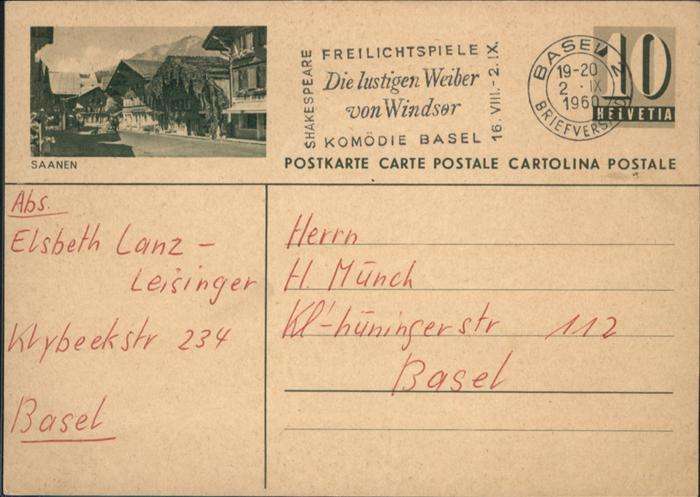 SAANEN
SHAKESPEARE
FREILICHTSPIELE
Die lustigen Weiber
von Windsor
KOMÖDIE BASEL
16. VIII.-2. IX.
BASEL 2
19-20
2 · IX
1960
BRIEFVERSAND
10
HELVETIA
POSTKARTE CARTE POSTALE CARTOLINA POSTALE
Abs.
Elsbeth Lanz -
Leisinger
Klybeckstr 234
Basel
Herrn
H. Münch
Kl'hüningerstr 112
Basel